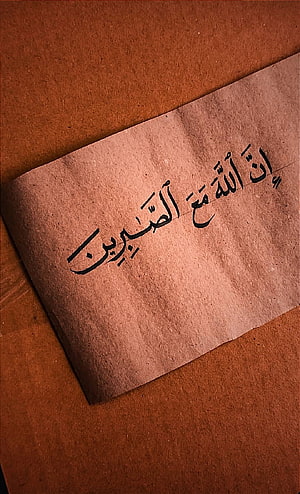 إِنَّ ٱللَّهَ مَعَ ٱلصَّٰبِرِينَ